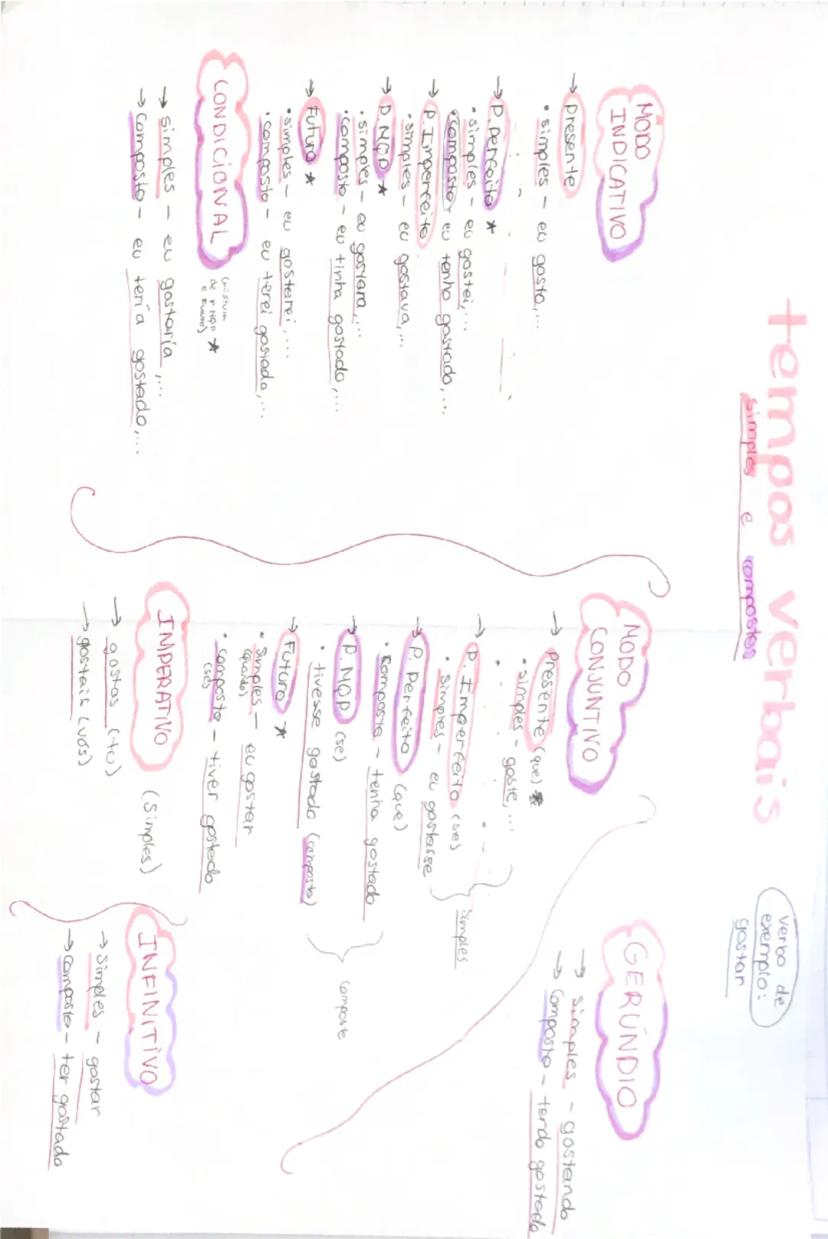 tempos verbais
simples e compostos
verbo de
exemplo:
gostar
MODO
INDICATIVO
→ presente
• simples – eu gosto,...
→ P. Perfeito ★
• simples – eu gostei,...
• composto – eu tenho gostado,...
→ P. Imperfeito
• simples – eu gostava,...
→ P. MQP ★
• simples – eu gostara,...
• composto – eu tinha gostado,...
→ Futuro ★
• simples – eu gostarei,...
• composto – eu terei gostado,...
CONDICIONAL
de PMQP ★
e Futuro)
→ simples – eu gostaria,...
→ composto – eu teria gostado,...
MODO
CONJUNTIVO
→ presente (que) ★
• simples – goste,...
→ P. Imperfeito (se)
• simples – eu gostasse
simples
→ P. Perfeito (que)
• composto – tenha gostado
→ P. MQP (se)
• tivesse gostado (composto)
composto
→ Futuro ★
• simples – eu gostar
(quando)
• composto – tiver gostado
(se)
IMPERATIVO (simples)
→ gostas (tu)
→ gostais (vós)
GERÚNDIO
→ simples – gostando
→ composto – tendo gostado
INFINITIVO
→ simples – gostar
→ composto – ter gostado